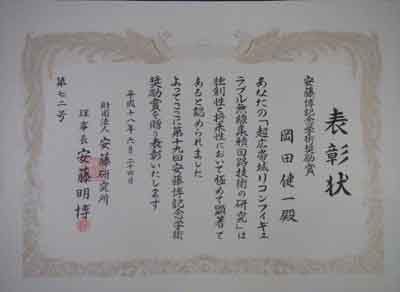 表彰状
安藤博記念学術奨励賞
岡田健一殿
あなたの「超広帯域リコンフィギュ
ラブル無線集積回路技術の研究」は
独創性と将来性において極めて顕著で
あると認められました
よってここに第十九回安藤博記念学術
奨励賞を贈り表彰いたします
平成十八年六月二十四日
財団法人 安藤研究所
理事長 安藤明博
第七二号